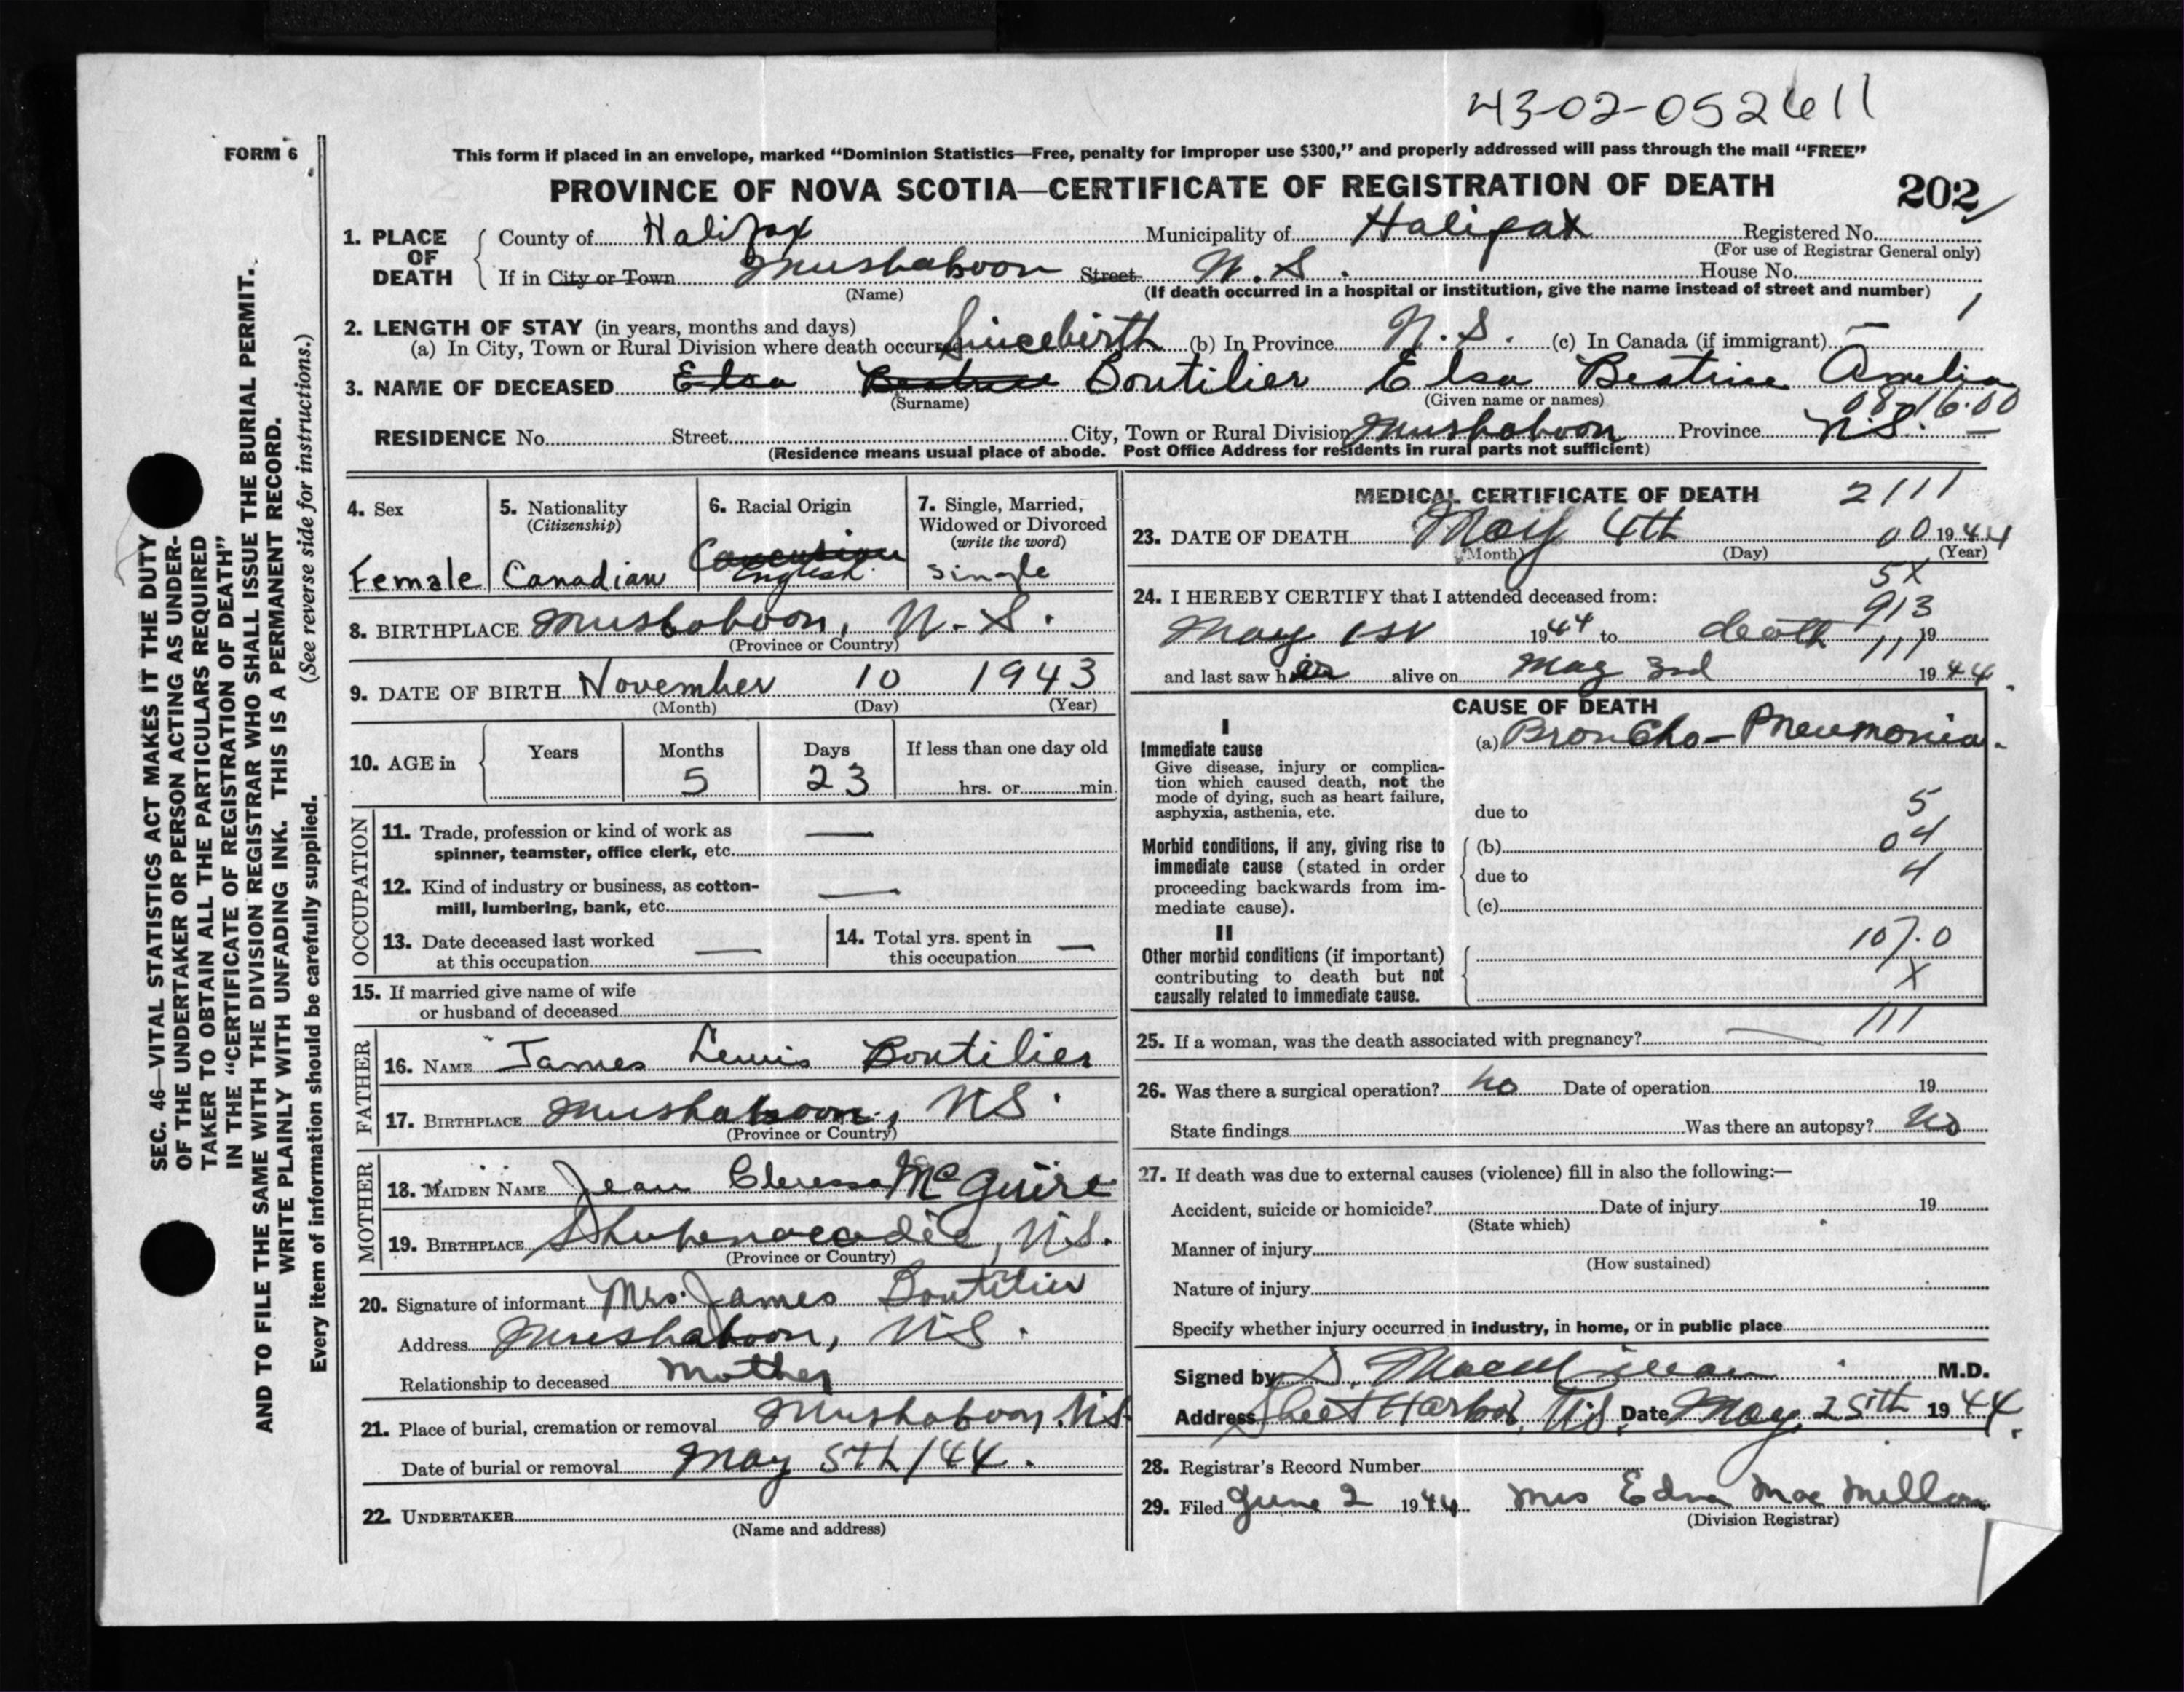 43-02-052611
FORM 6
This form if placed in an envelope, marked “Dominion Statistics—Free, penalty for improper use $300,” and properly addressed will pass through the mail “FREE”
PROVINCE OF NOVA SCOTIA—CERTIFICATE OF REGISTRATION OF DEATH 202
1. PLACE OF DEATH County of Halifax Municipality of Halifax Registered No.
(For use of Registrar General only)
If in City or Town Mushaboon Street N.S. House No.
(Name) (If death occurred in a hospital or institution, give the name instead of street and number)
1
2. LENGTH OF STAY (in years, months and days)
(a) In City, Town or Rural Division where death occurred Since birth (b) In Province N.S. (c) In Canada (if immigrant) —
3. NAME OF DECEASED Elsa Beatrice Boutilier Elsa Beatrice Amelia
(Surname) (Given name or names)
08-16.00
RESIDENCE No. Street City, Town or Rural Division Mushaboon Province N.S.
(Residence means usual place of abode. Post Office Address for residents in rural parts not sufficient)
4. Sex
Female
5. Nationality
(Citizenship)
Canadian
6. Racial Origin
English
7. Single, Married,
Widowed or Divorced
(write the word)
Single
8. BIRTHPLACE Mushaboon, N.S.
(Province or Country)
9. DATE OF BIRTH November 10 1943
(Month) (Day) (Year)
10. AGE in Years Months Days If less than one day old
5 23 hrs. or min.
OCCUPATION
11. Trade, profession or kind of work as —
spinner, teamster, office clerk, etc.
12. Kind of industry or business, as cotton- —
mill, lumbering, bank, etc.
13. Date deceased last worked
at this occupation —
14. Total yrs. spent in
this occupation —
15. If married give name of wife
or husband of deceased
FATHER
16. NAME James Lewis Boutilier
17. BIRTHPLACE Mushaboon, NS.
(Province or Country)
MOTHER
18. MAIDEN NAME Jean Cleressa McGuire
19. BIRTHPLACE Shubenacadie, N.S.
(Province or Country)
20. Signature of informant Mrs. James Boutilier
Address Mushaboon, N.S.
Relationship to deceased Mother
21. Place of burial, cremation or removal Mushaboon, N.S.
Date of burial or removal May 5th/44.
22. UNDERTAKER
(Name and address)
MEDICAL CERTIFICATE OF DEATH 2111
23. DATE OF DEATH May 4th 00 1944
(Month) (Day) (Year)
5X
24. I HEREBY CERTIFY that I attended deceased from: 913
May 1st 1944 to death 19
111
and last saw her alive on May 3rd 1944.
CAUSE OF DEATH
I
Immediate cause
Give disease, injury or complica-
tion which caused death, not the
mode of dying, such as heart failure,
asphyxia, asthenia, etc.
(a) Broncho-Pneumonia.
due to 5
Morbid conditions, if any, giving rise to
immediate cause (stated in order
proceeding backwards from im-
mediate cause).
(b) 04
due to 4
(c)
II
Other morbid conditions (if important)
contributing to death but not
causally related to immediate cause.
107.0
X
111
25. If a woman, was the death associated with pregnancy? —
26. Was there a surgical operation? no Date of operation 19
State findings Was there an autopsy? no
27. If death was due to external causes (violence) fill in also the following:—
Accident, suicide or homicide? Date of injury 19
(State which)
Manner of injury
(How sustained)
Nature of injury
Specify whether injury occurred in industry, in home, or in public place
Signed by D. MacMillan M.D.
Address Sheet Harbor, N.S. Date May 25th 1944.
28. Registrar's Record Number
29. Filed June 2 1944 Mrs Edna MacMillan
(Division Registrar)
SEC. 46—VITAL STATISTICS ACT MAKES IT THE DUTY
OF THE UNDERTAKER OR PERSON ACTING AS UNDER-
TAKER TO OBTAIN ALL THE PARTICULARS REQUIRED
IN THE “CERTIFICATE OF REGISTRATION OF DEATH”
AND TO FILE THE SAME WITH THE DIVISION REGISTRAR WHO SHALL ISSUE THE BURIAL PERMIT.
WRITE PLAINLY WITH UNFADING INK. THIS IS A PERMANENT RECORD.
(See reverse side for instructions.)
Every item of information should be carefully supplied.